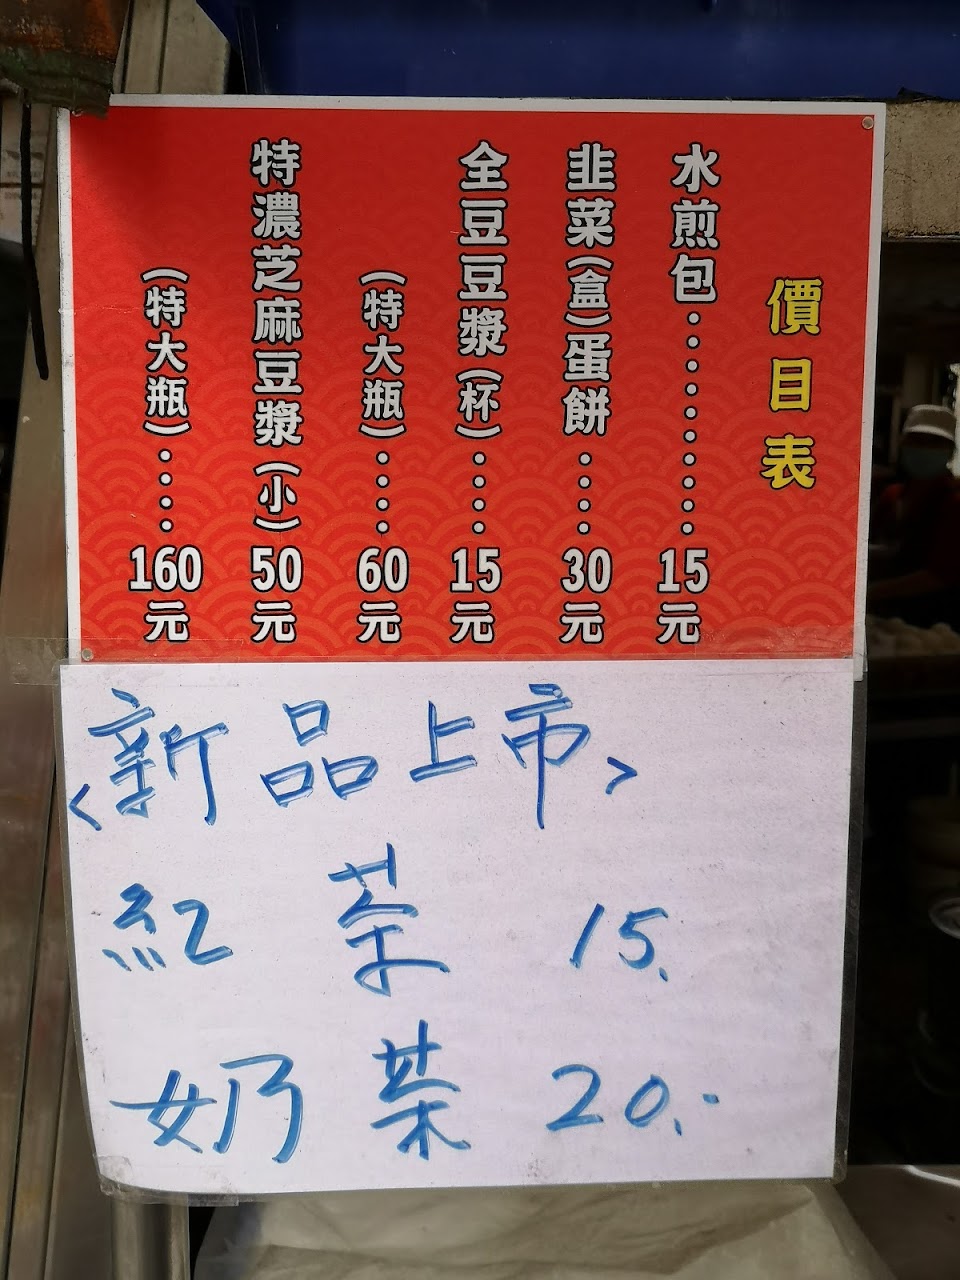 價目表
水煎包............15元
韭菜(盒)蛋餅....30元
全豆豆漿(杯)....15元
(特大瓶)....60元
特濃芝麻豆漿(小)50元
(特大瓶)....160元
<新品上市>
紅茶 15.
奶茶 20.-